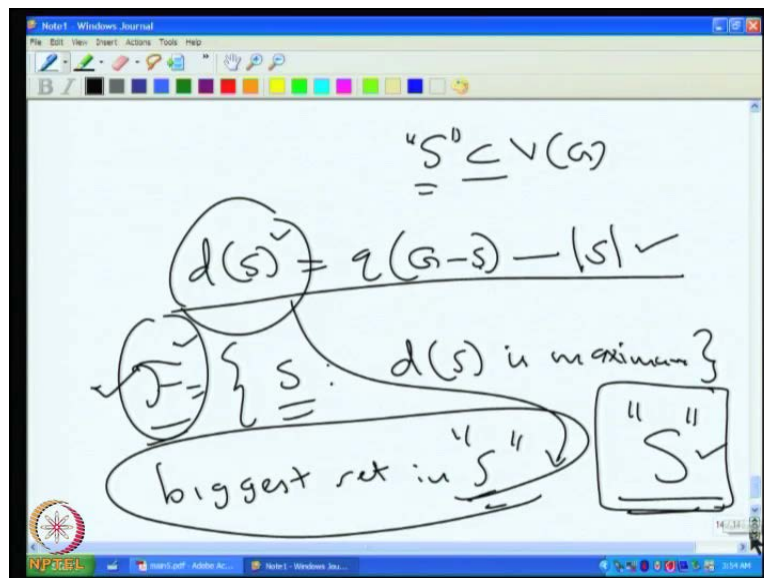 Note1 - Windows Journal
File Edit View Insert Actions Tools Help
B I
"S" ⊂ V(G)
d(S) = q(G-S) - |S|
F = { S : d(S) is maximum }
biggest set in "S"
"S"
NPTEL
main5.pdf - Adobe Ac...
Note1 - Windows Jou...
3:54 AM